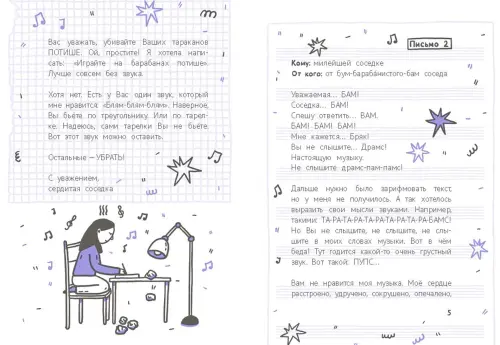 Вас уважать, убивайте Ваших тараканов
ПОТИШЕ. Ой, простите! Я хотела напи-
сать: «Играйте на барабанах потише».
Лучше совсем без звука.
Хотя нет. Есть у Вас один звук, который
мне нравится: «Блям-блям-блям». Наверное,
Вы бьёте по треугольнику. Или по тарел-
ке. Надеюсь, сами тарелки Вы не бьёте.
Вот этот звук можно оставить.
Остальные — УБРАТЬ!
С уважением,
сердитая соседка
Письмо 2
Кому: милейшей соседке
От кого: от бум-барабáнистого-бам соседа
Уважаемая... БАМ!
Соседка... БАМ!
Спешу ответить... ВАМ,
БАМ! БАМ! БАМ!
Мне кажется... Бряк!
Вы не слышите... Дранс!
Настоящую музыку.
Не слышите драмс-пам-памс!
Дальше нужно было зарифмовать текст,
но у меня не получилось. А так хотелось
выразить свои мысли звуками. Например,
такими: ТА-РА-ТА-РА-ТА-РА-ТА-РА-БАМС!
Но Вы не слышите, не слышите, не слы-
шите в моих словах музыки. Вот в чём
беда! Тут годится какой-то очень грустный
звук. Вот такой: ПУПС...
Вам не нравится моя музыка. Моё сердце
расстроено, удручено, сокрушено, опечалено,
5